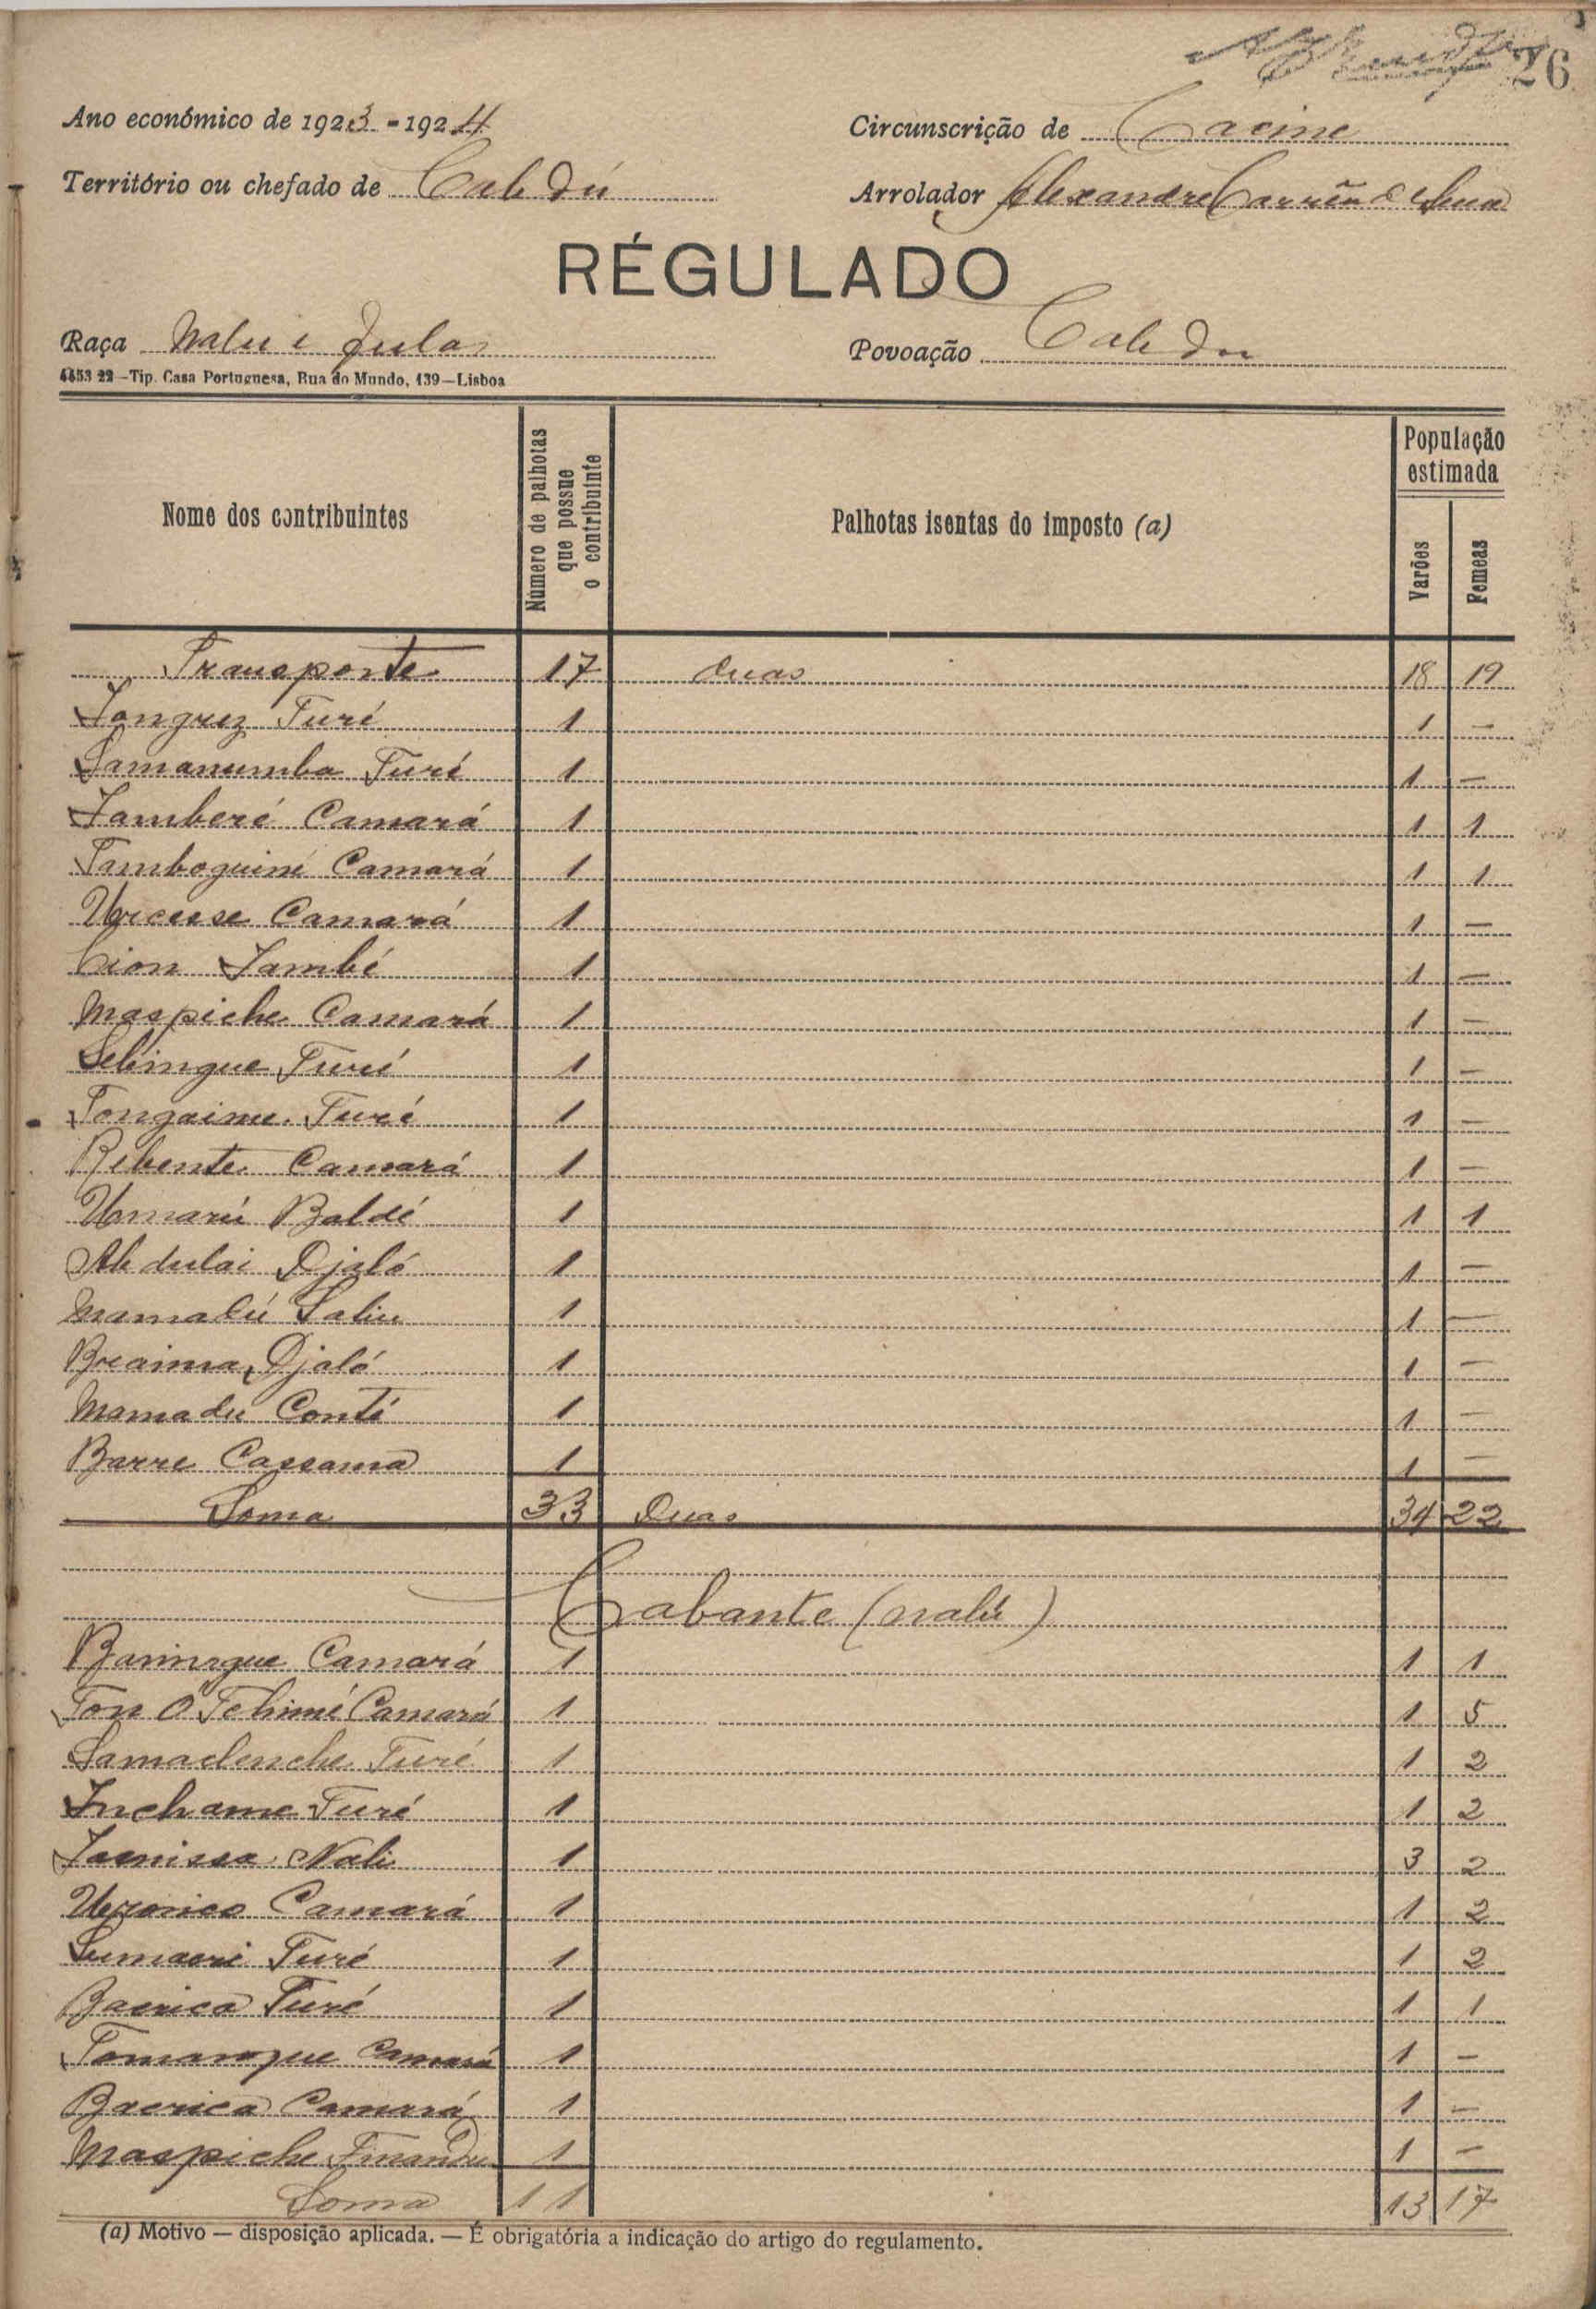 26
Ano económico de 1923-1924
Circunscrição de Cacine
Território ou chefado de Cabedú
Arrolador Alexandre
RÉGULADO
Raça Nalu e Fula
Povoação Cabedu
4453 22 - Tip. Casa Portuguesa, Rua do Mundo, 139 - Lisboa
Nome dos contribuintes
Número de palhotas que possue o contribuinte
Palhotas isentas do imposto (a)
População estimada
Varões
Femeas
Transporte 17 duas 18 19
Turé 1 1 —
Samanumba Turé 1 1 —
Jamberé Camará 1 1 1
Tamboguiné Camará 1 1 1
Camará 1 1 —
Jambé 1 1 —
Maspiche Camará 1 1 —
Sebingue Turé 1 1 —
Turé 1 1 —
Rebente Camará 1 1 —
Umarú Baldé 1 1 1
Abdulai Djaló 1 1 —
Mamadú Saliu 1 1 —
Braima Djaló 1 1 —
Mamadu Conté 1 1 —
Barre Cassama 1 1 —
Soma 33 Duas 34 22
Cabante (nalú)
Camará 1 1 1
Camará 1 1 5
Turé 1 1 2
Inchame Turé 1 1 2
Nali 1 3 2
Camará 1 1 2
Turé 1 1 2
Turé 1 1 1
Camará 1 1 -
Camará 1 1 -
Maspiche 1 1 -
Soma 11 13 17
(a) Motivo — disposição aplicada. — É obrigatória a indicação do artigo do regulamento.